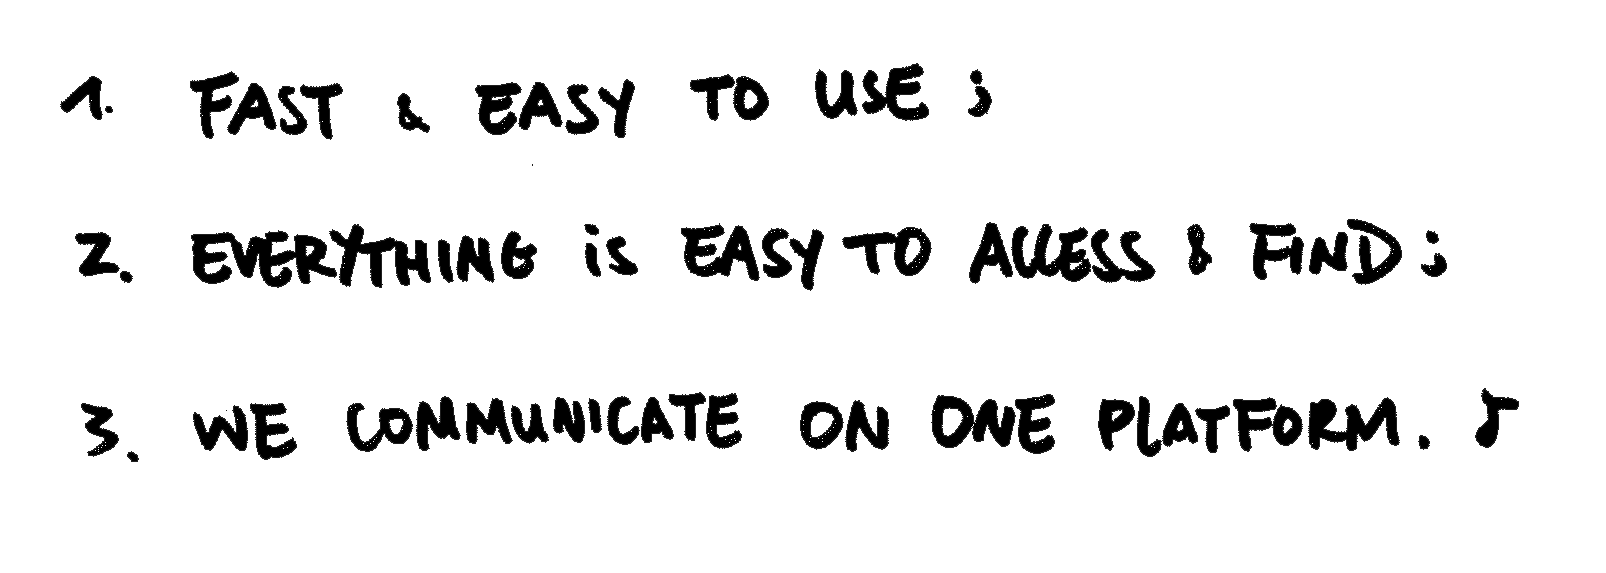 1. FAST & EASY TO USE ;
2. EVERYTHING is EASY TO ACCESS & FIND ;
3. WE COMMUNICATE ON ONE PLATFORM. ♪